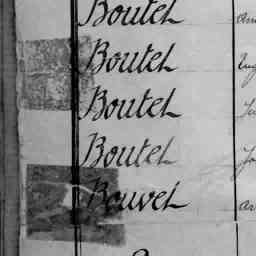 Boutet
Boutet
Boutet
Boutet
Bouvet